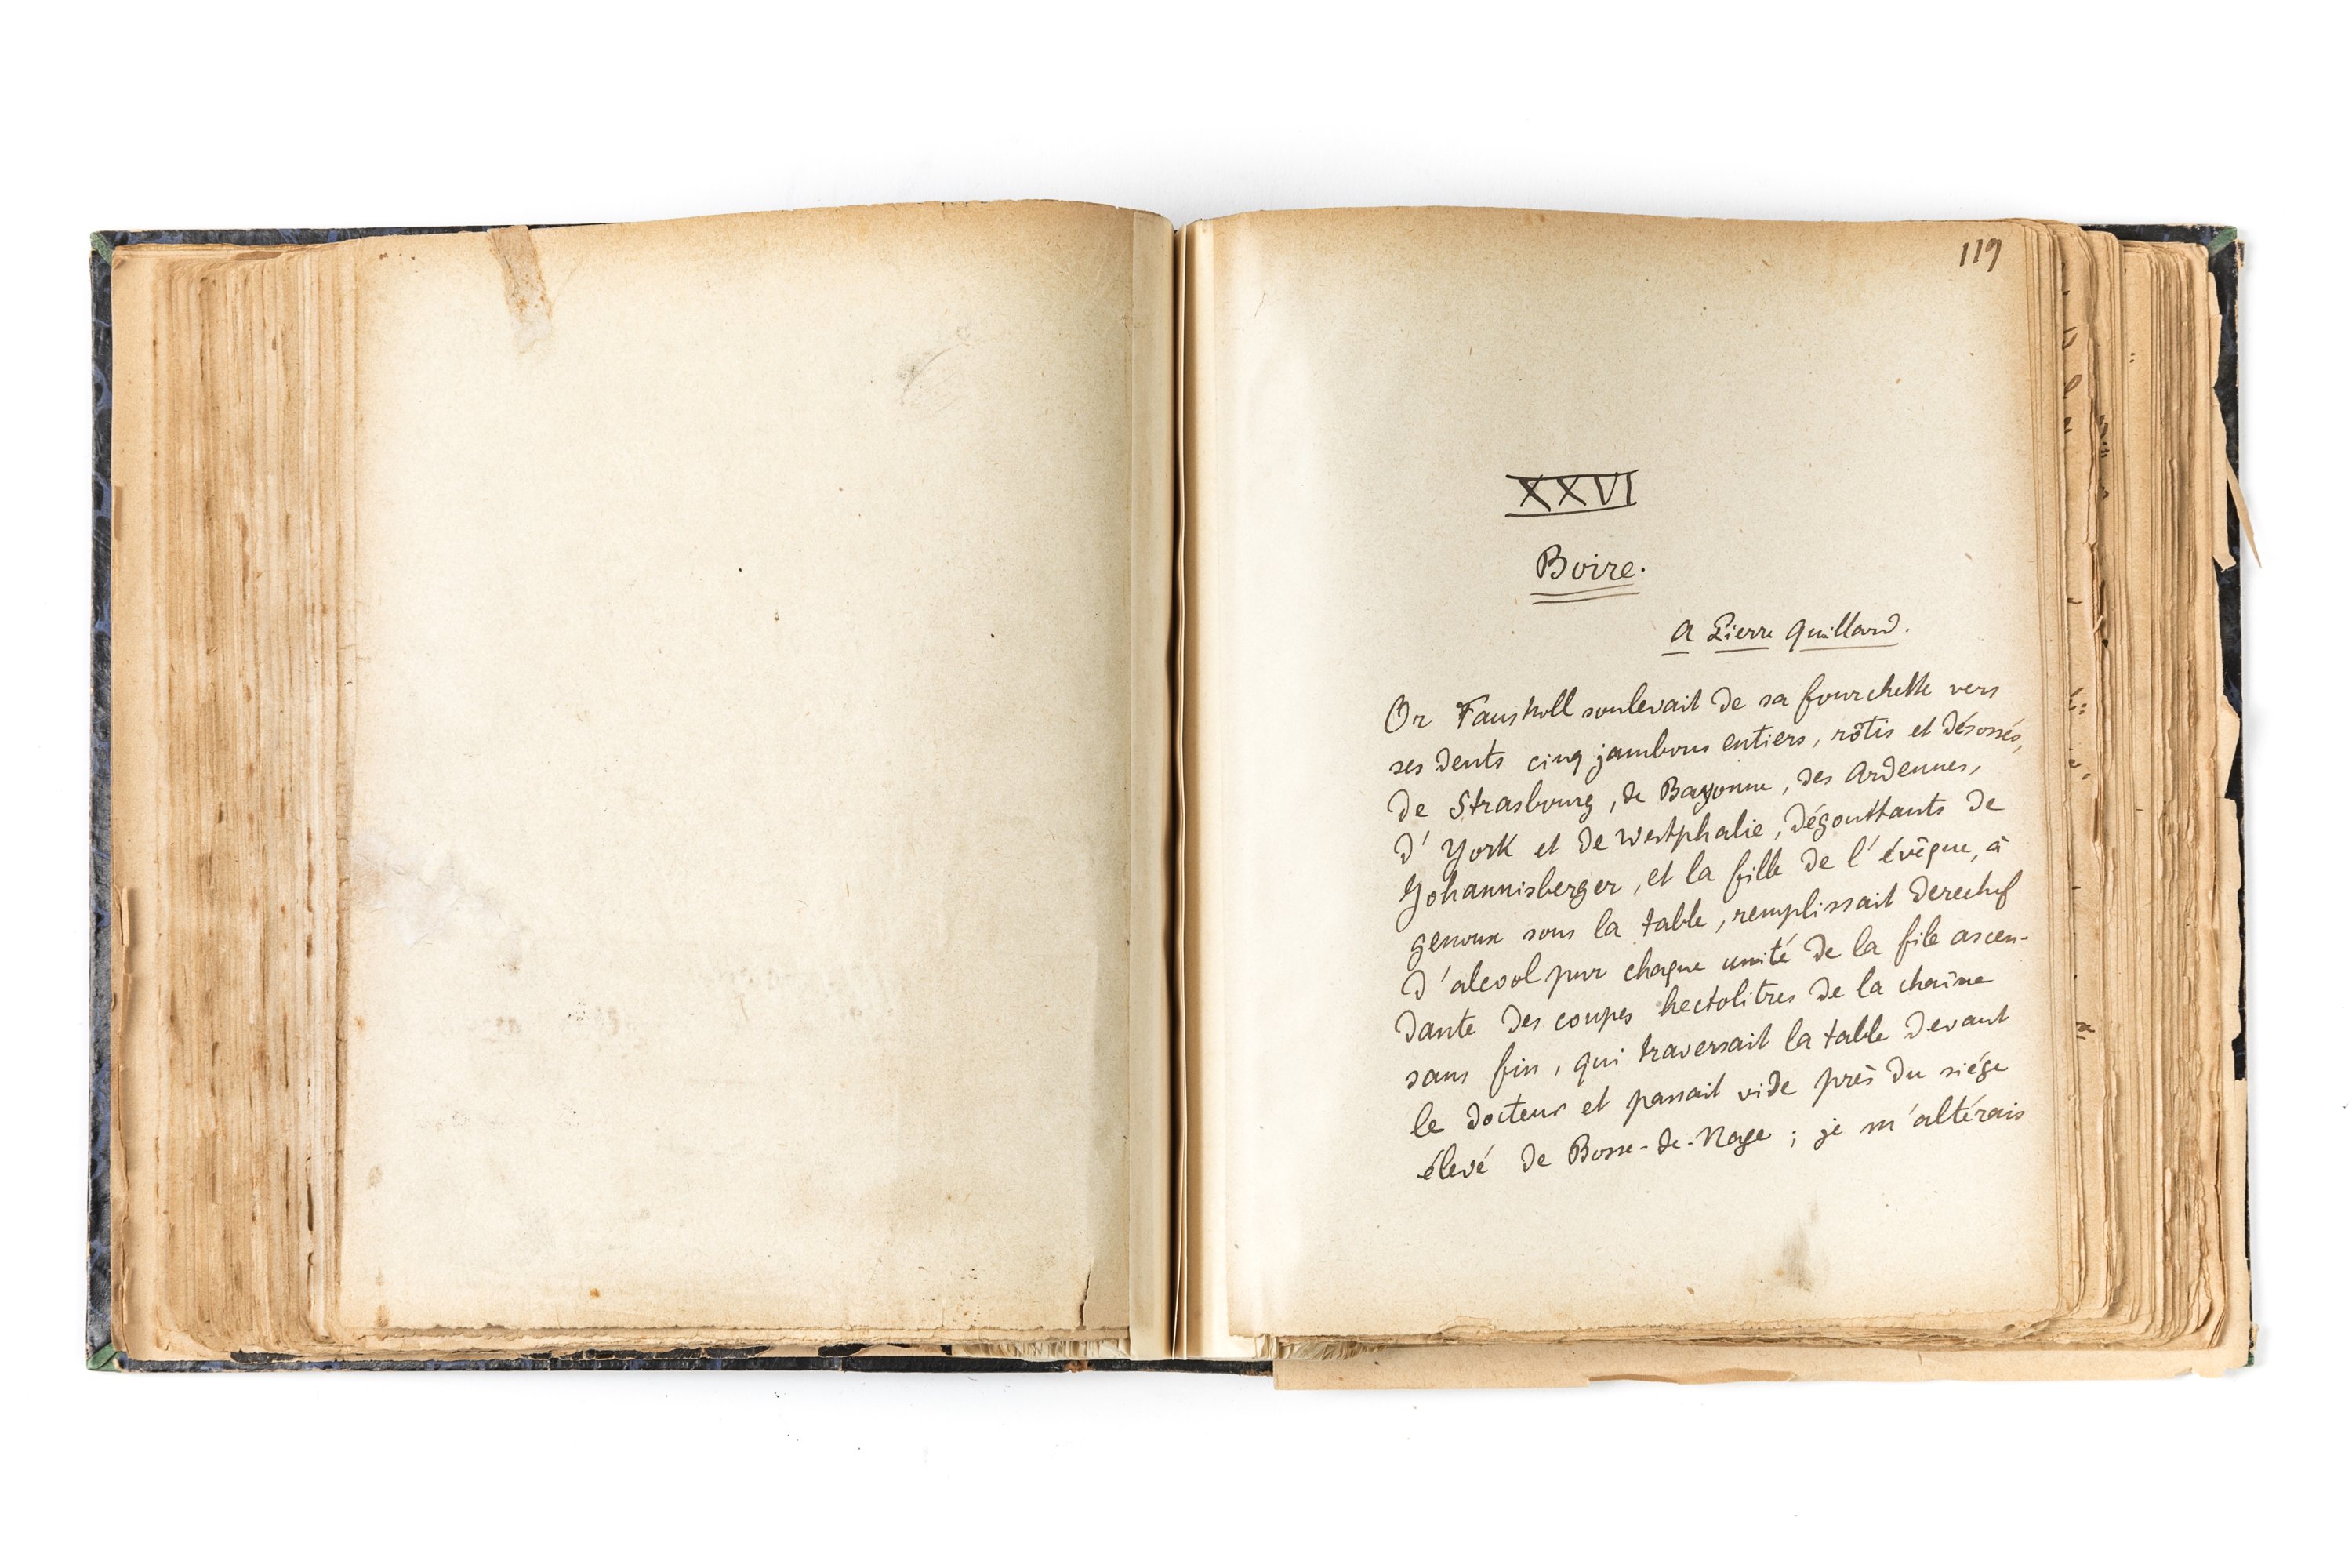 119
XXVI
Boire.
A Pierre Quillard.
Or Faustroll soulevait de sa fourchette vers
ses dents cinq jambons entiers, rôtis et désossés,
de Strasbourg, de Bayonne, des Ardennes,
d'York et de Westphalie, dégouttants de
Johannisberger, et la fille de l'évêque, à
genoux sous la table, remplissait derechef
d'alcool pur chaque unité de la file ascen-
dante des coupes hectolitres de la chaîne
sans fin, qui traversait la table devant
le docteur et passait vide près du siége
élevé de Bosse-de-Nage ; je m'altérais